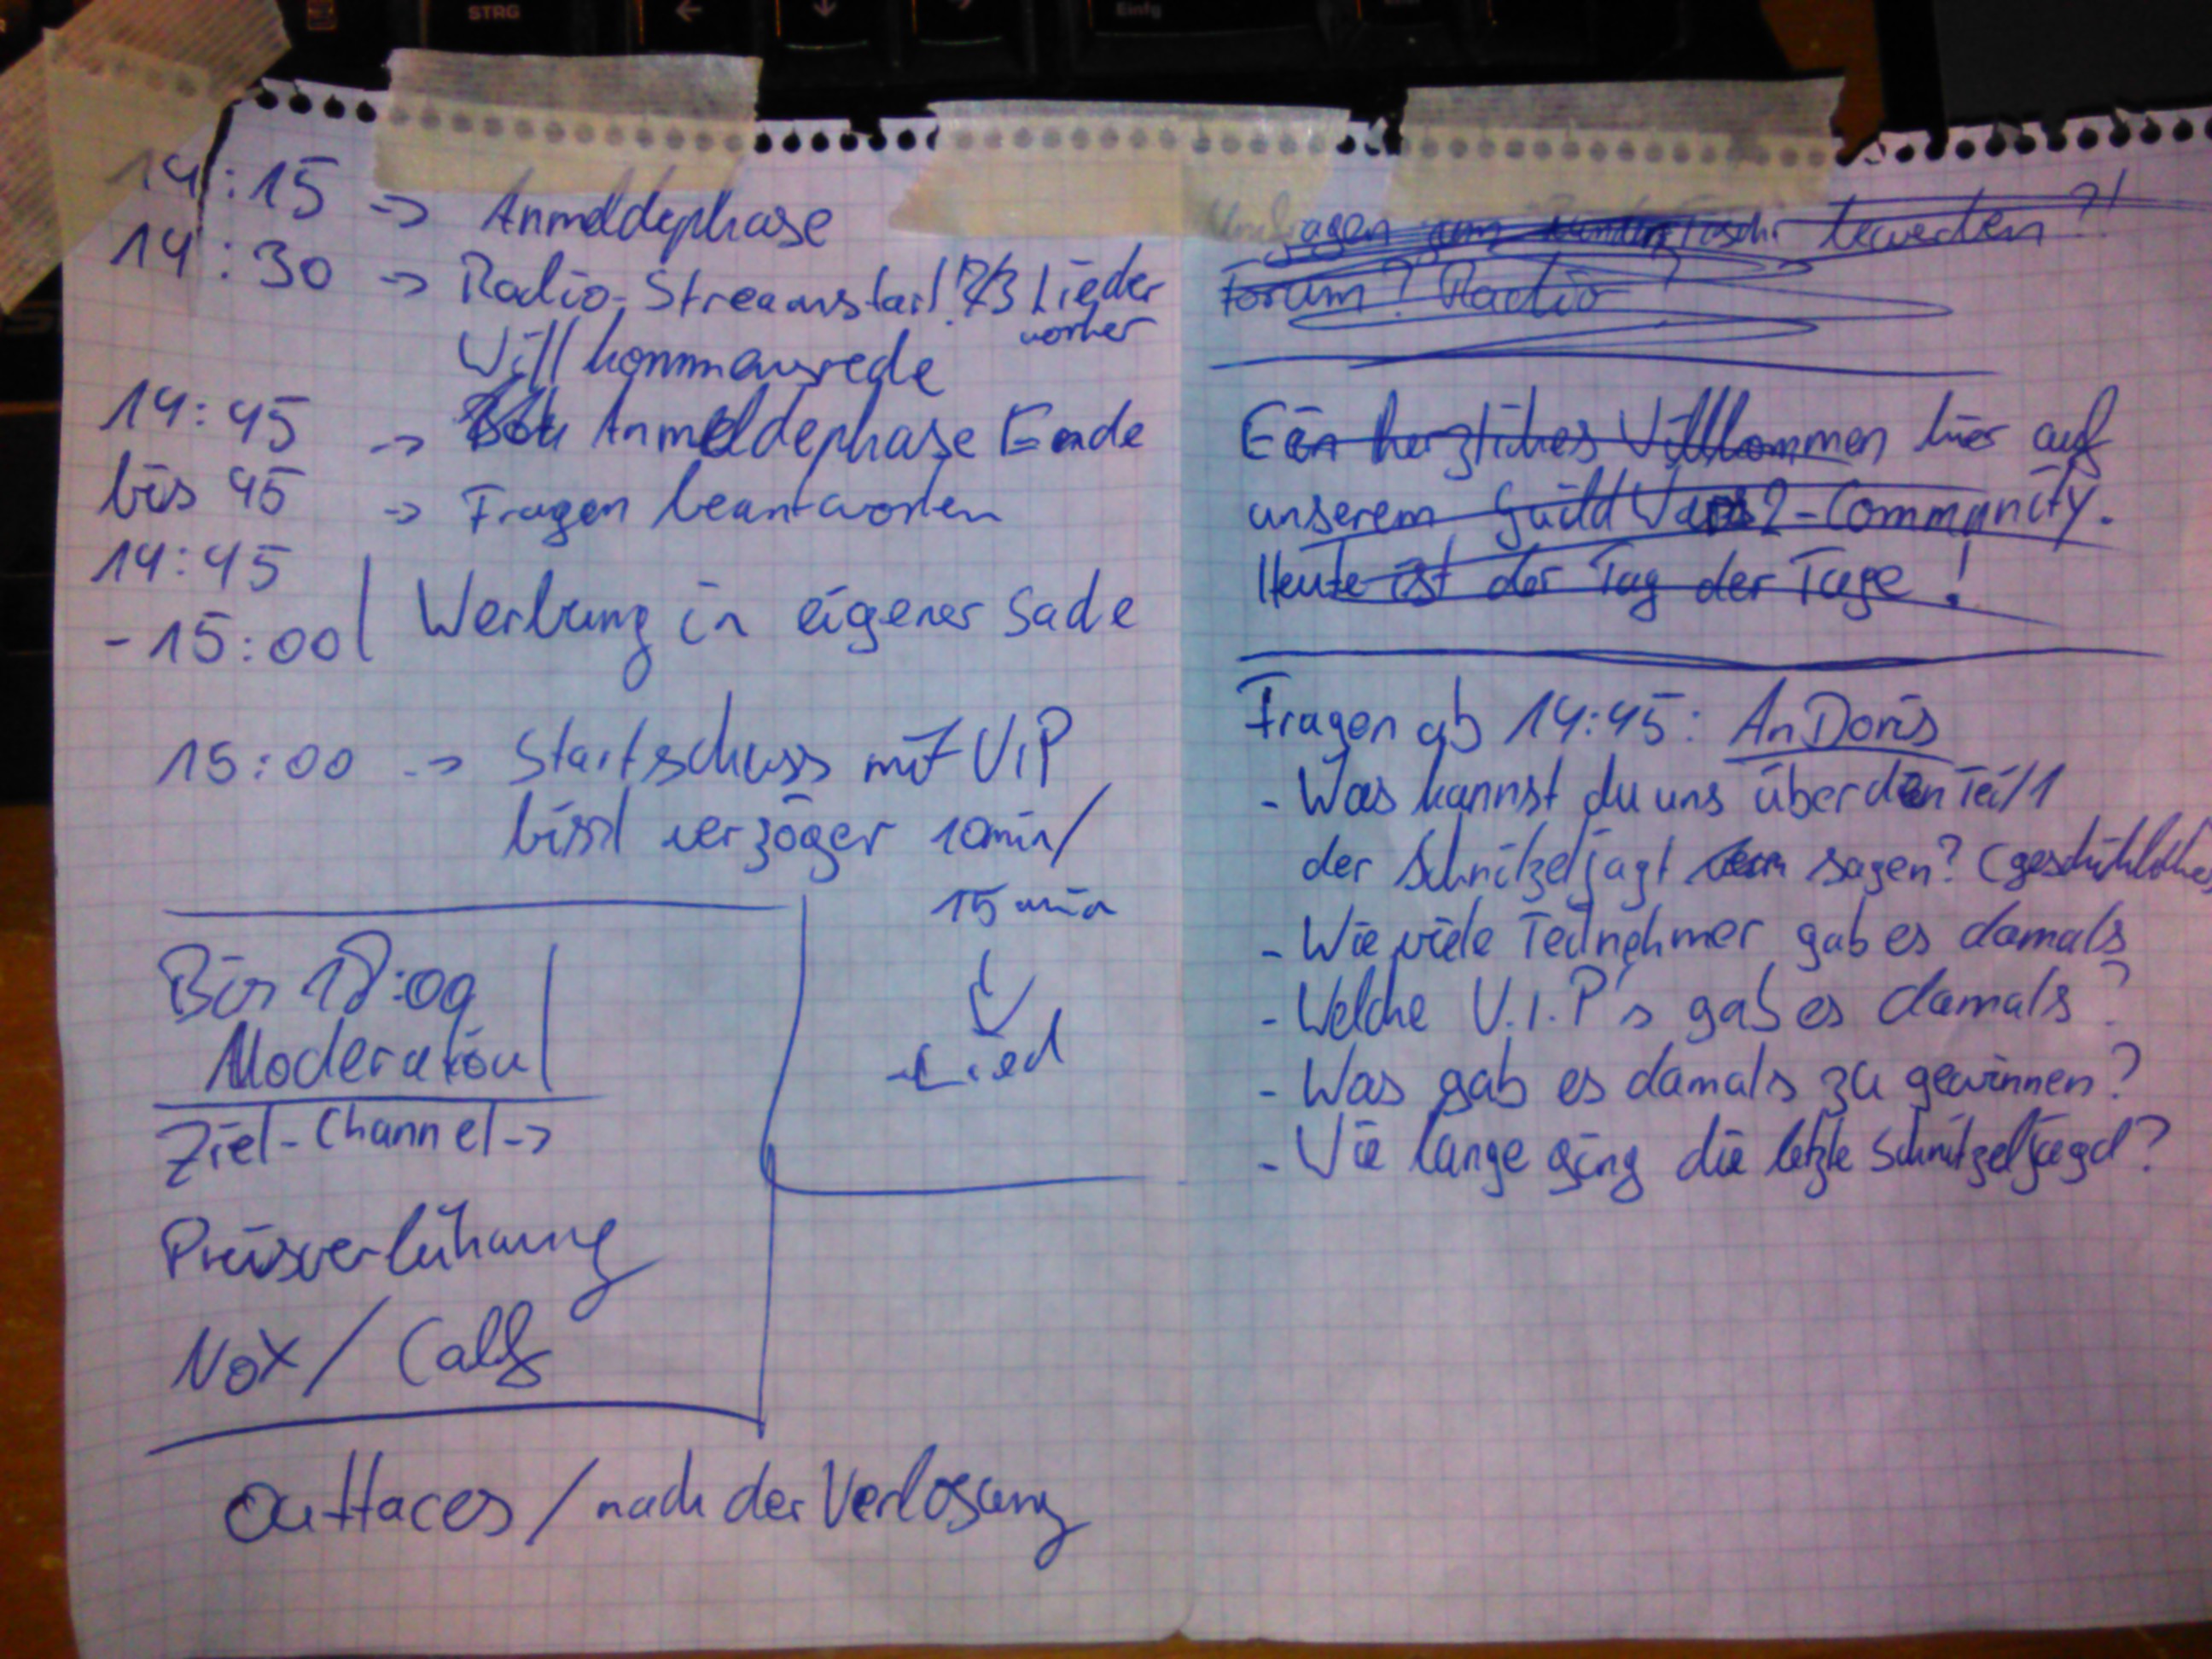 STRG
←
↓
Einfg
14:15 -> Anmeldephase
14:30 -> Radio-Streamstart! 2/3 Lieder
vorher
Willkommensrede
14:45 -> Anmeldephase Ende
bis 45 -> Fragen beantworten
14:45
- 15:00 | Werbung in eigener Sache
15:00 -> Startschuss mit ViP
bissl verzöger 10min/
15 min
Lied
Bis 18:00
Moderation
Ziel-Channel->
Preisverleihung
Nox / Calls
Outtaces / nach der Verlosung
Umfragen am Runden Tisch bewerten?!
Forum? Radio?
Ein herzliches Willkommen hier auf
unserem Guild Wars2-Community.
Heute ist der Tag der Tage!
Fragen ab 14:45: An Doris
- Was kannst du uns über den Teil 1
der Schnitzeljagt sagen? (geschichtliches
- Wie viele Teilnehmer gab es damals
- Welche V.I.P's gab es damals?
- Was gab es damals zu gewinnen?
- Wie lange ging die letzte Schnitzeljagd?